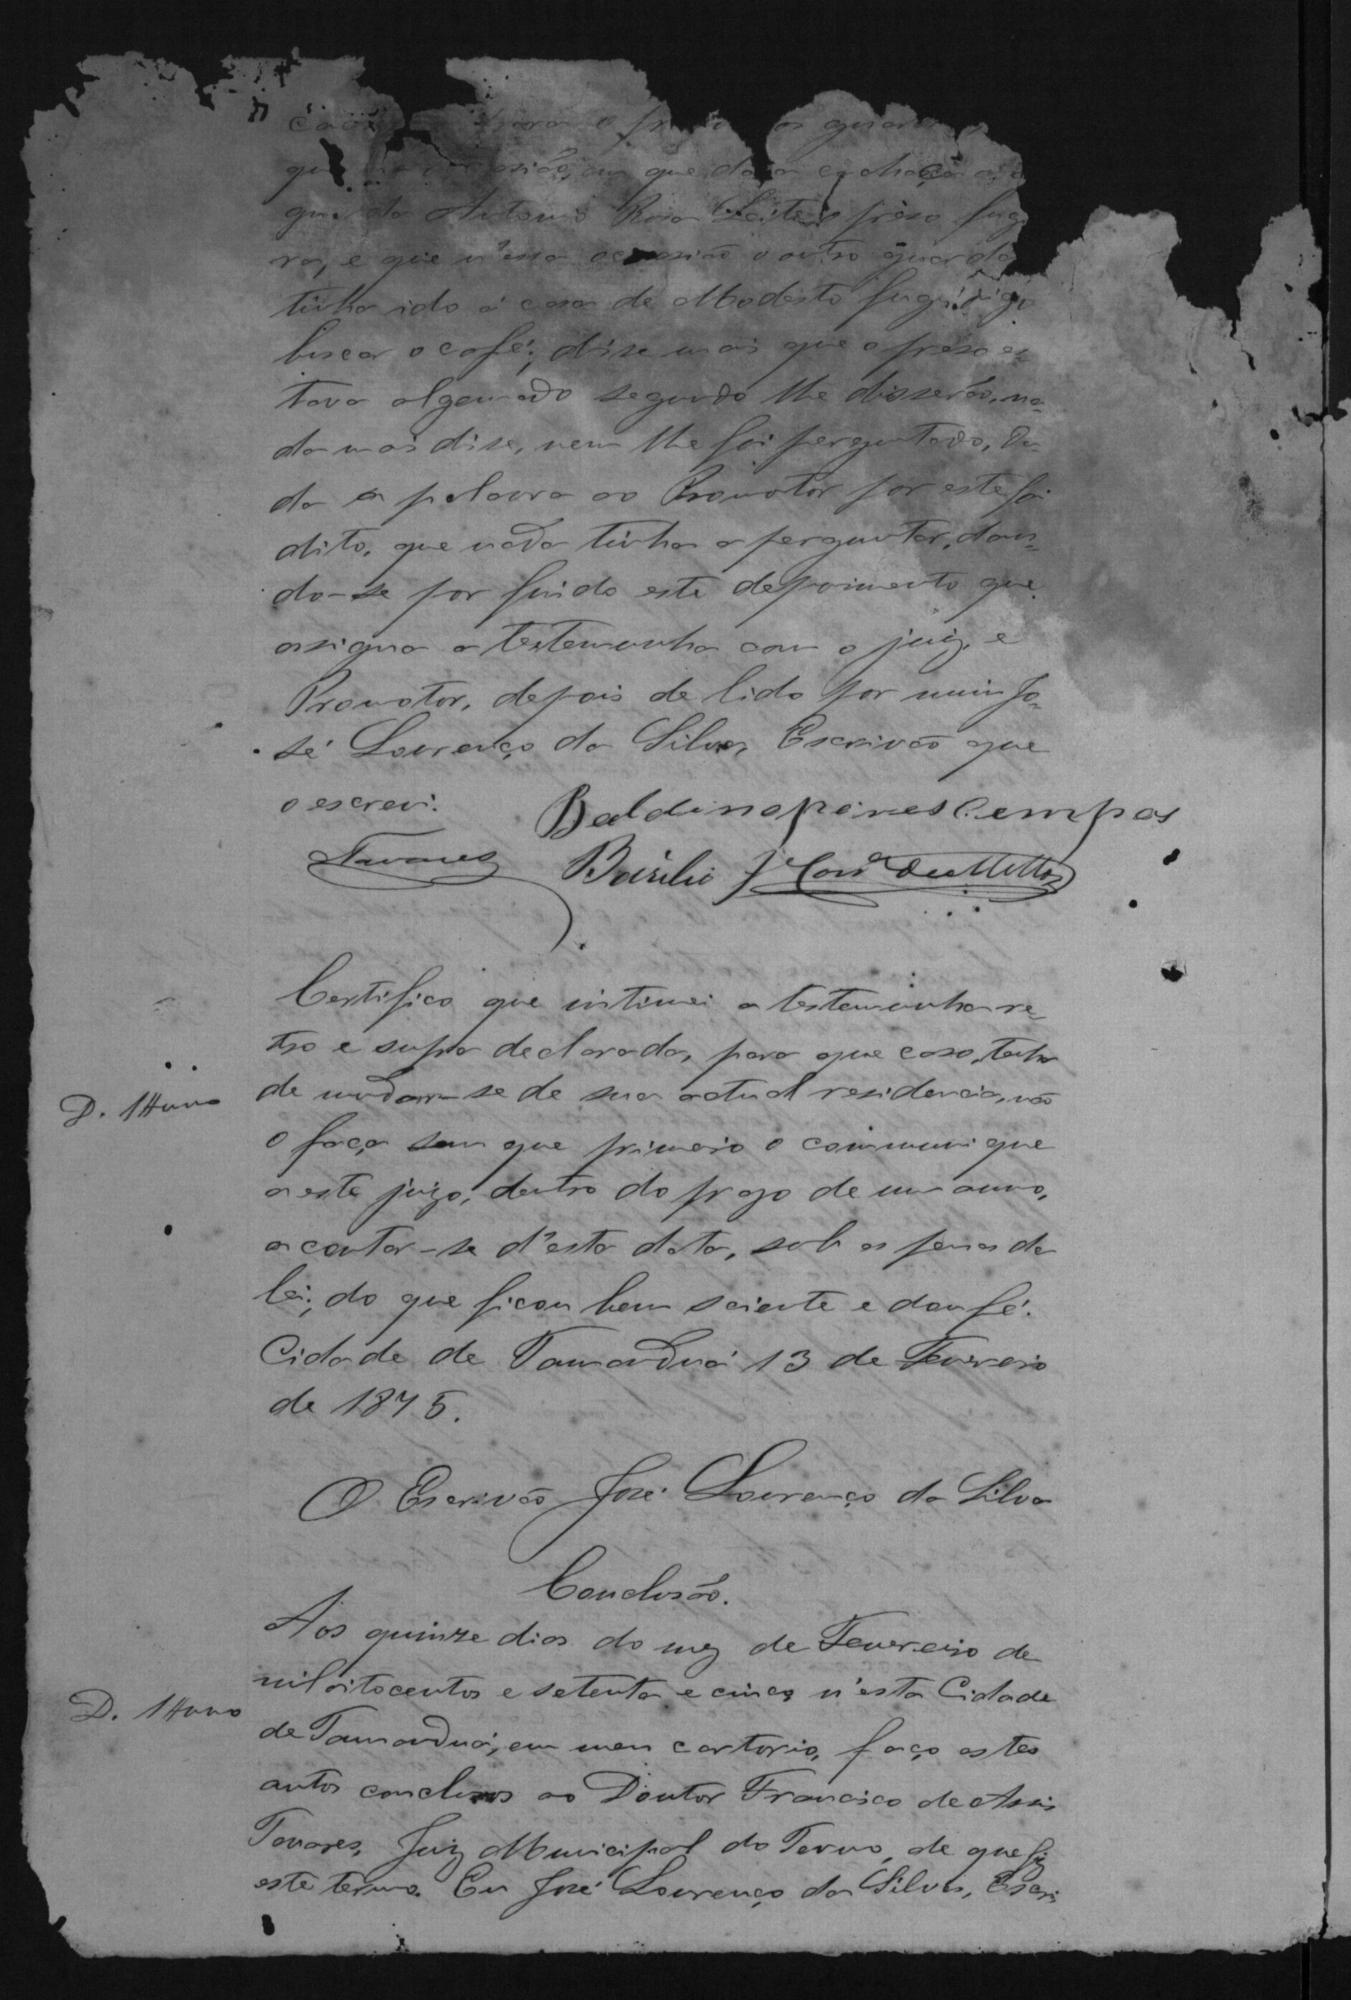 que dava
guarda Antonio Rosa Leite o prêso fugi
ra, e que n'essa occasião o outro guarda
tinha ido á casa de Modesto
buscar o café; disse mais que o prêso es
tava algemado segundo lhe disserão, na
da mais disse, nem lhe foi perguntado, Da
da a palavra ao Promotor por este foi
dito, que nada tinha a perguntar, dan
do-se por findo este depoimento que
assigna a testemunha com o juiz, e
Promotor, depois de lido por mim Jo
sé Lourenço da Silva, Escrivão que
o escrevi.
Baldino pires Campos
Tavares
Basilio
Certifico que intimei a testemunha re
tro e supra declarada, para que caso tenha
de mudar-se de sua actual residencia, não
D. 1 Anno
o faça sem que primeiro o communique
a este juizo, dentro do prazo de um anno,
a contar-se d'esta data, sob as penas da
lei; do que ficou bem sciente e dou fé.
Cidade de Tamanduá 13 de Fevereiro
de 1875.
O Escrivão José Lourenço da Silva
Conclusão.
Aos quinze dias do mez de Fevereiro de
mil oitocentos e setenta e cinco n'esta Cidade
D. 1 Anno
de Tamanduá, em meu cartorio, faço estes
autos conclusos ao Doutor Francisco de Assis
Tavares, Juiz Municipal do Termo, de que fiz
este termo. Eu José Lourenço da Silva, Escri